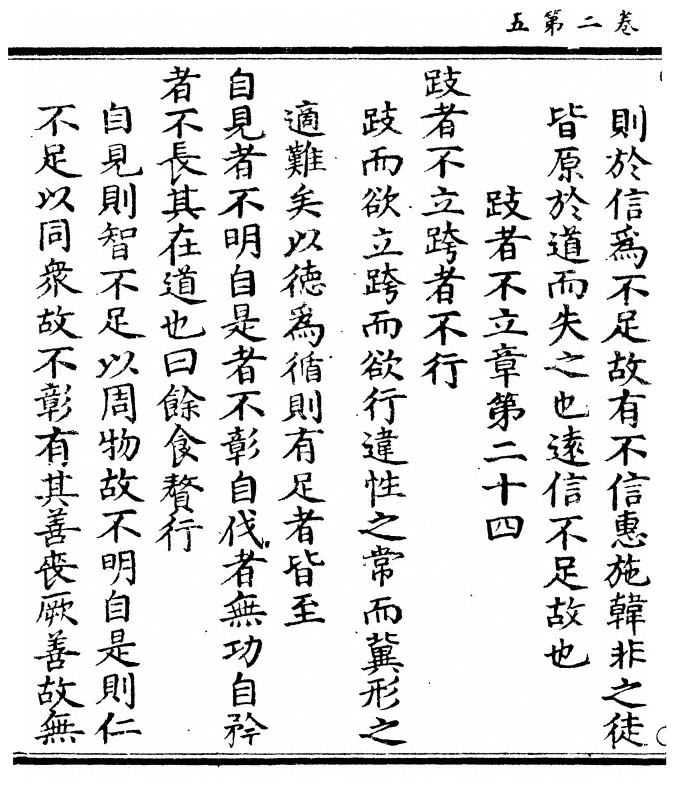 卷二第五
則於信爲不足故有不信惠施韓非之徒
皆原於道而失之也遠信不足故也
跂者不立章第二十四
跂者不立跨者不行
跂而欲立跨而欲行違性之常而冀形之
適難矣以德爲循則有足者皆至
自見者不明自是者不彰自伐者無功自矜
者不長其在道也曰餘食贅行
自見則智不足以周物故不明自是則仁
不足以同衆故不彰有其善喪厥善故無